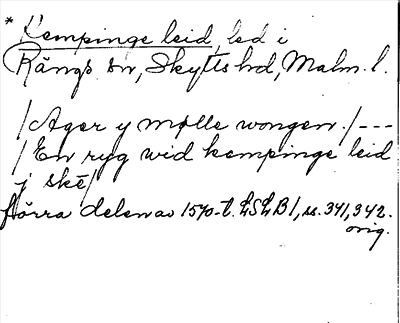 * Kempinge leid, led i
Rängs sn, Skytts hd, Malm. l.
/Ager y mølle wongen./---
/En ryg wid kempinge leid
j skē/
förra delen av 1570-t. LSLB1, ss. 341, 342.
orig.